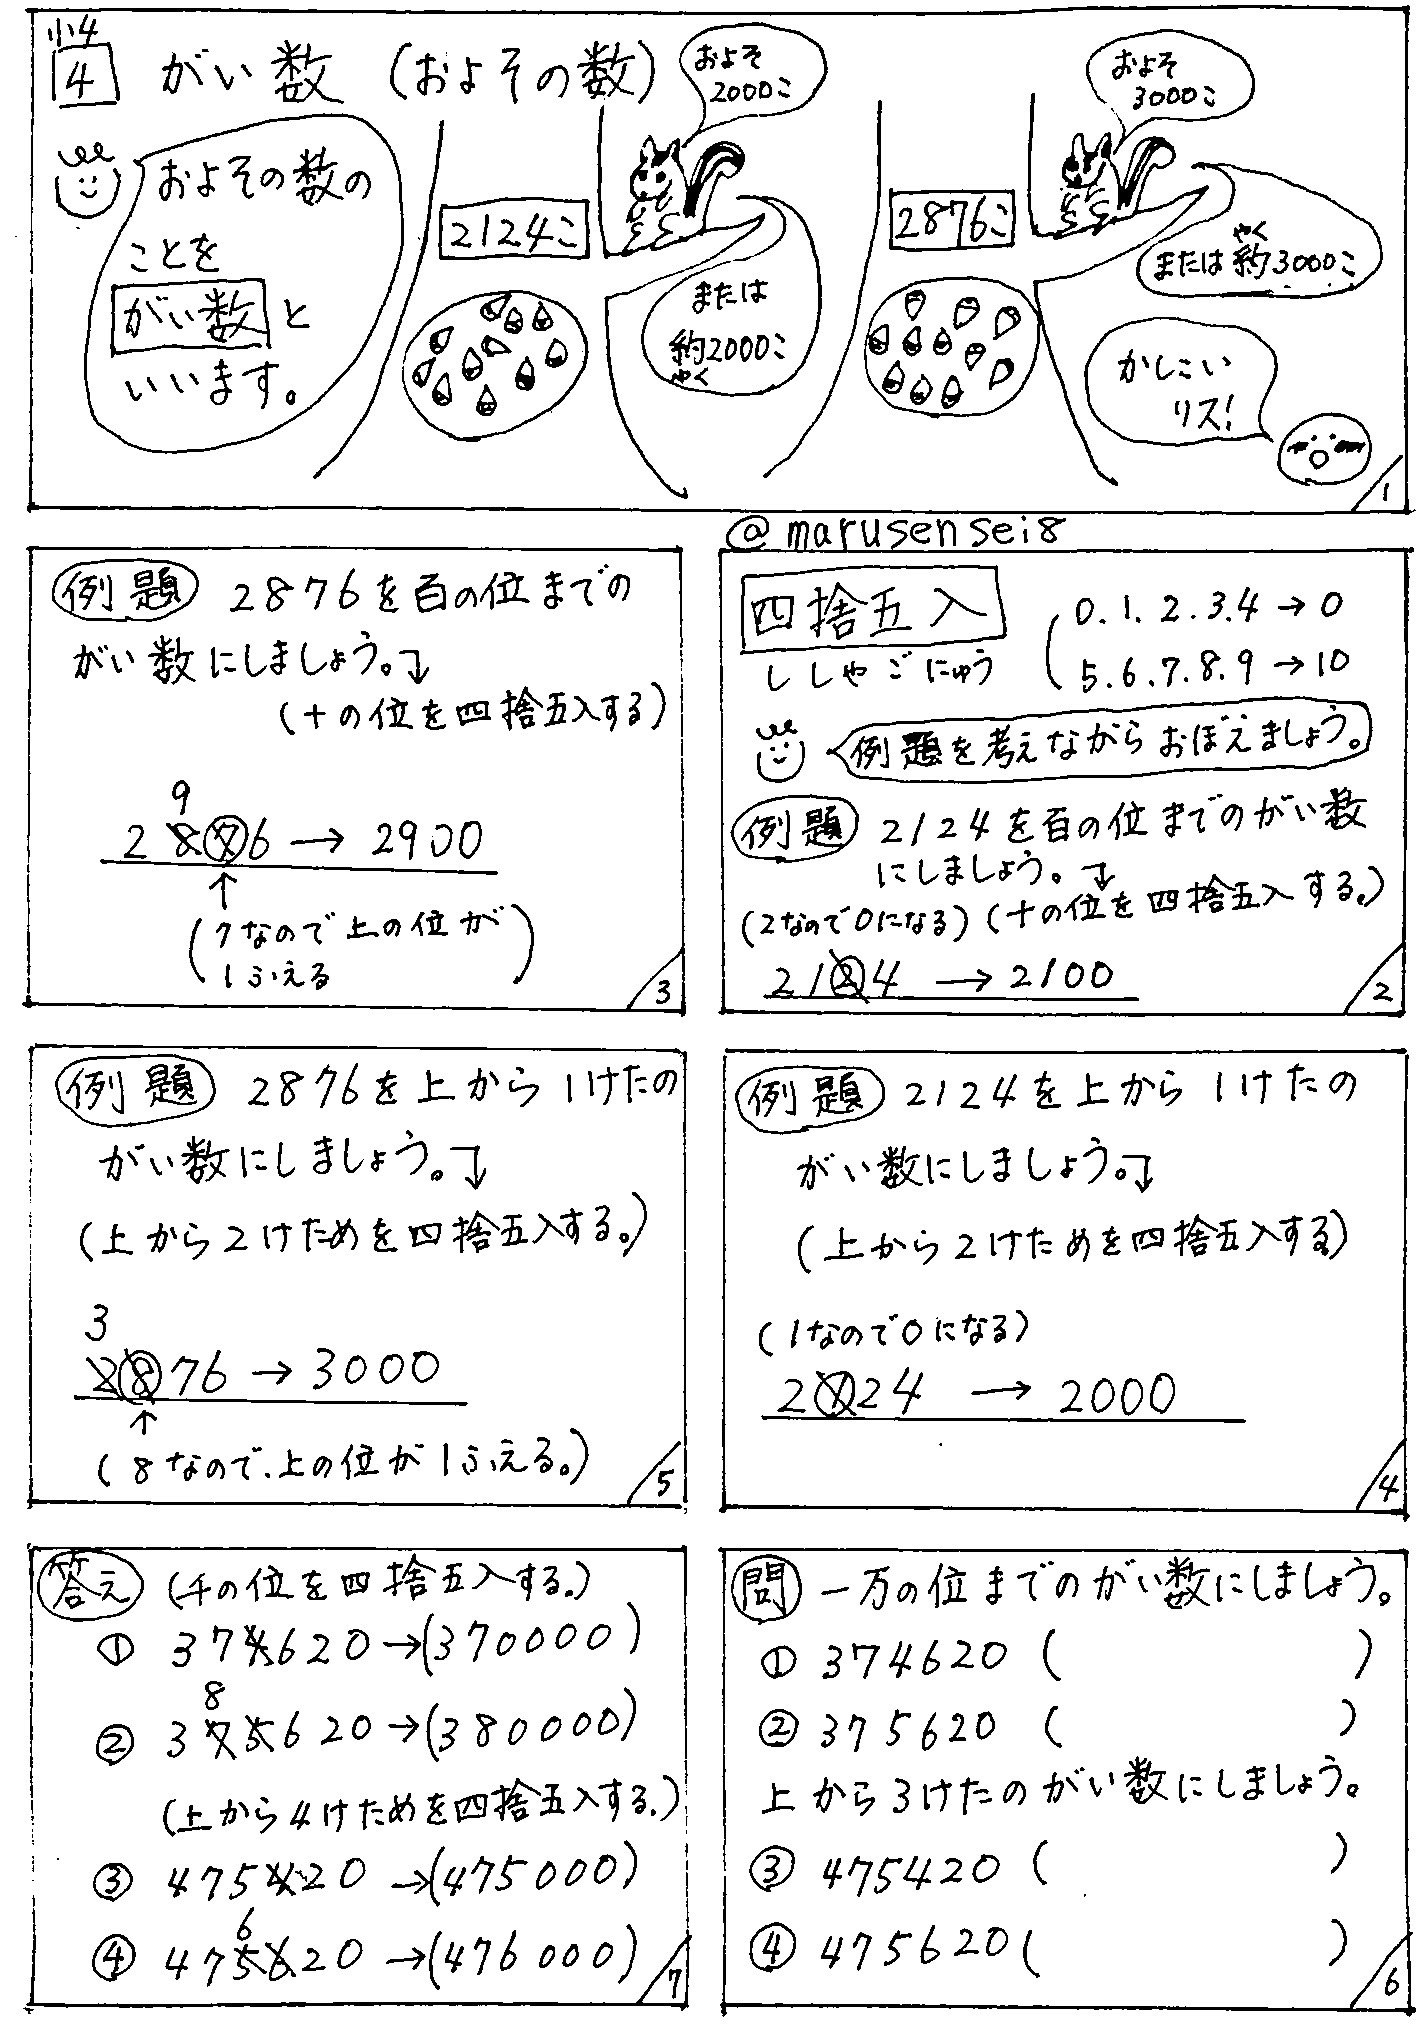 小4
4 がい数 (およその数)
およその数の
ことを
がい数 と
いいます。
2124こ
およそ
2000こ
または
約2000こ
やく
2876こ
およそ
3000こ
やく
または約3000こ
かしこい
リス!
1
@marusensei8
四捨五入
ししゃごにゅう
0.1.2.3.4→0
5.6.7.8.9→10
例題を考えながらおぼえましょう。
例題 2124を百の位までのがい数
にしましょう。↓
(2なので0になる)(十の位を四捨五入する。)
2124 → 2100
2
例題 2876を百の位までの
がい数にしましょう。↓
(十の位を四捨五入する)
9
2876 → 2900
↑
(7なので上の位が
1ふえる)
3
例題 2124を上から1けたの
がい数にしましょう。↓
(上から2けためを四捨五入する)
(1なので0になる)
2124 → 2000
4
例題 2876を上から1けたの
がい数にしましょう。↓
(上から2けためを四捨五入する。)
3
2876 → 3000
↑
(8なので、上の位が1ふえる。)
5
問 一万の位までのがい数にしましょう。
① 374620 ( )
② 375620 ( )
上から3けたのがい数にしましょう。
③ 475420 ( )
④ 475620 ( )
6
答え (千の位を四捨五入する。)
① 374620→(370000)
8
② 375620→(380000)
(上から4けためを四捨五入する。)
③ 475420→(475000)
6
④ 475620→(476000)
7